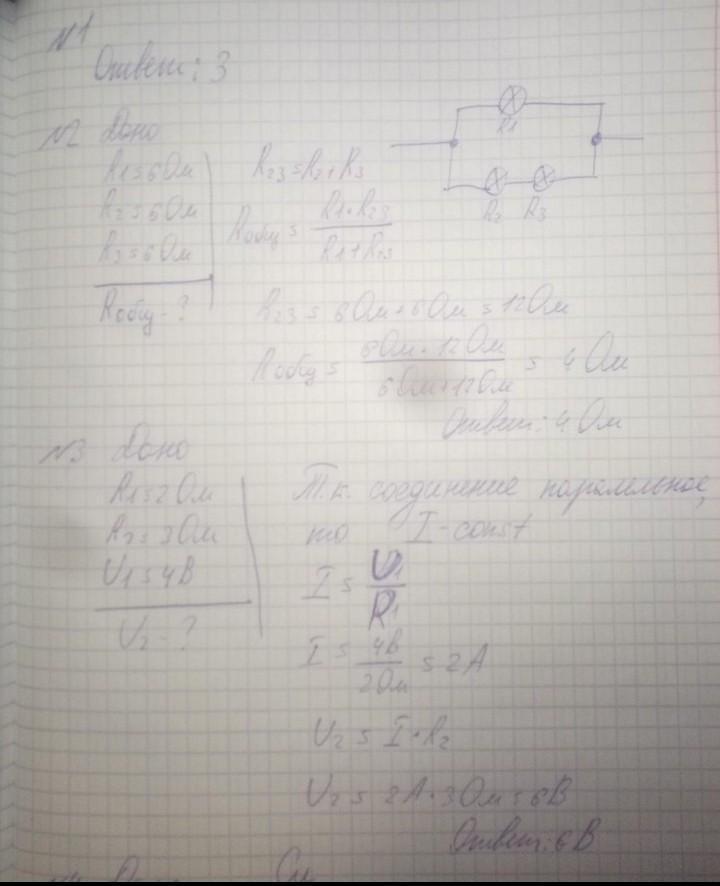 №1
Ответ: 3
№2 Дано
R1 = 6 Ом
R2 = 6 Ом
R3 = 6 Ом
Rобщ - ?
R23 = R2 + R3
Rобщ = R1 · R23 / R1 + R23
R1
R2 R3
R23 = 6 Ом + 6 Ом = 12 Ом
Rобщ = 6 Ом · 12 Ом / 6 Ом + 12 Ом = 4 Ом
Ответ: 4 Ом
№3 Дано
R1 = 2 Ом
R2 = 3 Ом
U1 = 4В
U2 - ?
Т.к. соединение паралельное,
то I - const
I = U1 / R1
I = 4В / 2 Ом = 2 А
U2 = I · R2
U2 = 2А · 3 Ом = 6В
Ответ: 6В